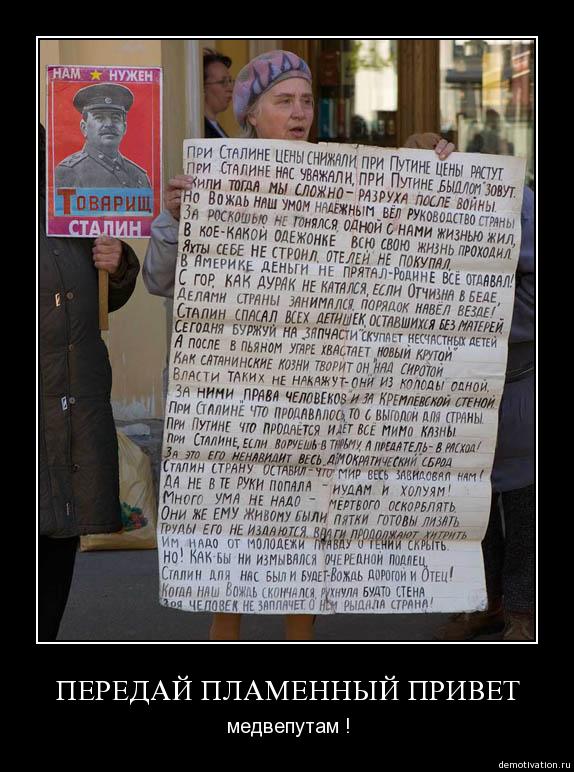 НАМ НУЖЕН
ТОВАРИЩ
СТАЛИН
ПРИ СТАЛИНЕ ЦЕНЫ СНИЖАЛИ, ПРИ ПУТИНЕ ЦЕНЫ РАСТУТ.
ПРИ СТАЛИНЕ НАС УВАЖАЛИ, ПРИ ПУТИНЕ „БЫДЛОМ" ЗОВУТ.
ЖИЛИ ТОГДА МЫ СЛОЖНО - РАЗРУХА ПОСЛЕ ВОЙНЫ.
НО ВОЖДЬ НАШ УМОМ НАДЁЖНЫМ ВЁЛ РУКОВОДСТВО СТРАНЫ
ЗА РОСКОШЬЮ НЕ ГОНЯЛСЯ, ОДНОЙ С НАМИ ЖИЗНЬЮ ЖИЛ,
В КОЕ-КАКОЙ ОДЕЖОНКЕ ВСЮ СВОЮ ЖИЗНЬ ПРОХОДИЛ.
ЯХТЫ СЕБЕ НЕ СТРОИЛ, ОТЕЛЕЙ НЕ ПОКУПАЛ,
В АМЕРИКЕ ДЕНЬГИ НЕ ПРЯТАЛ - РОДИНЕ ВСЁ ОТДАВАЛ!
С ГОР, КАК ДУРАК НЕ КАТАЛСЯ, ЕСЛИ ОТЧИЗНА В БЕДЕ,
ДЕЛАМИ СТРАНЫ ЗАНИМАЛСЯ, ПОРЯДОК НАВЁЛ ВЕЗДЕ!
СТАЛИН СПАСАЛ ВСЕХ ДЕТИШЕК, ОСТАВШИХСЯ БЕЗ МАТЕРЕЙ.
СЕГОДНЯ БУРЖУЙ НА „ЗАПЧАСТИ" СКУПАЕТ НЕСЧАСТНЫХ ДЕТЕЙ
А ПОСЛЕ В ПЬЯНОМ УГАРЕ ХВАСТАЕТ „НОВЫЙ КРУТОЙ"
КАК САТАНИНСКИЕ КОЗНИ ТВОРИТ ОН НАД СИРОТОЙ
ВЛАСТИ ТАКИХ НЕ НАКАЖУТ - ОНИ ИЗ КОЛОДЫ ОДНОЙ.
ЗА НИМИ „ПРАВА ЧЕЛОВЕКОВ" И ЗА КРЕМЛЕВСКОЙ СТЕНОЙ.
ПРИ СТАЛИНЕ ЧТО ПРОДАВАЛОСЬ, ТО С ВЫГОДОЙ ДЛЯ СТРАНЫ.
ПРИ ПУТИНЕ ЧТО ПРОДАЁТСЯ ИДЁТ ВСЁ МИМО КАЗНЫ.
ПРИ СТАЛИНЕ, ЕСЛИ ВОРУЕШЬ - В ТЮРЬМУ, А ПРЕДАТЕЛЬ - В РАСХОД!
ЗА ЭТО ЕГО НЕНАВИДИТ ВЕСЬ ДЕМОКРАТИЧЕСКИЙ СБРОД
СТАЛИН СТРАНУ ОСТАВИЛ - ЧТО МИР ВЕСЬ ЗАВИДОВАЛ НАМ!
ДА НЕ В ТЕ РУКИ ПОПАЛА - ИУДАМ И ХОЛУЯМ!
МНОГО УМА НЕ НАДО - МЕРТВОГО ОСКОРБЛЯТЬ
ОНИ ЖЕ ЕМУ ЖИВОМУ БЫЛИ ПЯТКИ ГОТОВЫ ЛИЗАТЬ
ТРУДЫ ЕГО НЕ ИЗДАЮТСЯ, ВРАГИ ПРОДОЛЖАЮТ ХИТРИТЬ
ИМ НАДО ОТ МОЛОДЕЖИ ПРАВДУ О ГЕНИИ СКРЫТЬ.
НО! КАК БЫ НИ ИЗМЫВАЛСЯ ОЧЕРЕДНОЙ ПОДЛЕЦ,
СТАЛИН ДЛЯ НАС БЫЛ И БУДЕТ - ВОЖДЬ ДОРОГОЙ И ОТЕЦ!
КОГДА НАШ ВОЖДЬ СКОНЧАЛСЯ, РУХНУЛА БУДТО СТЕНА
ЗРЯ ЧЕЛОВЕК НЕ ЗАПЛАЧЕТ, О НЁМ РЫДАЛА СТРАНА!
ПЕРЕДАЙ ПЛАМЕННЫЙ ПРИВЕТ
медвепутам !
demotivation.ru